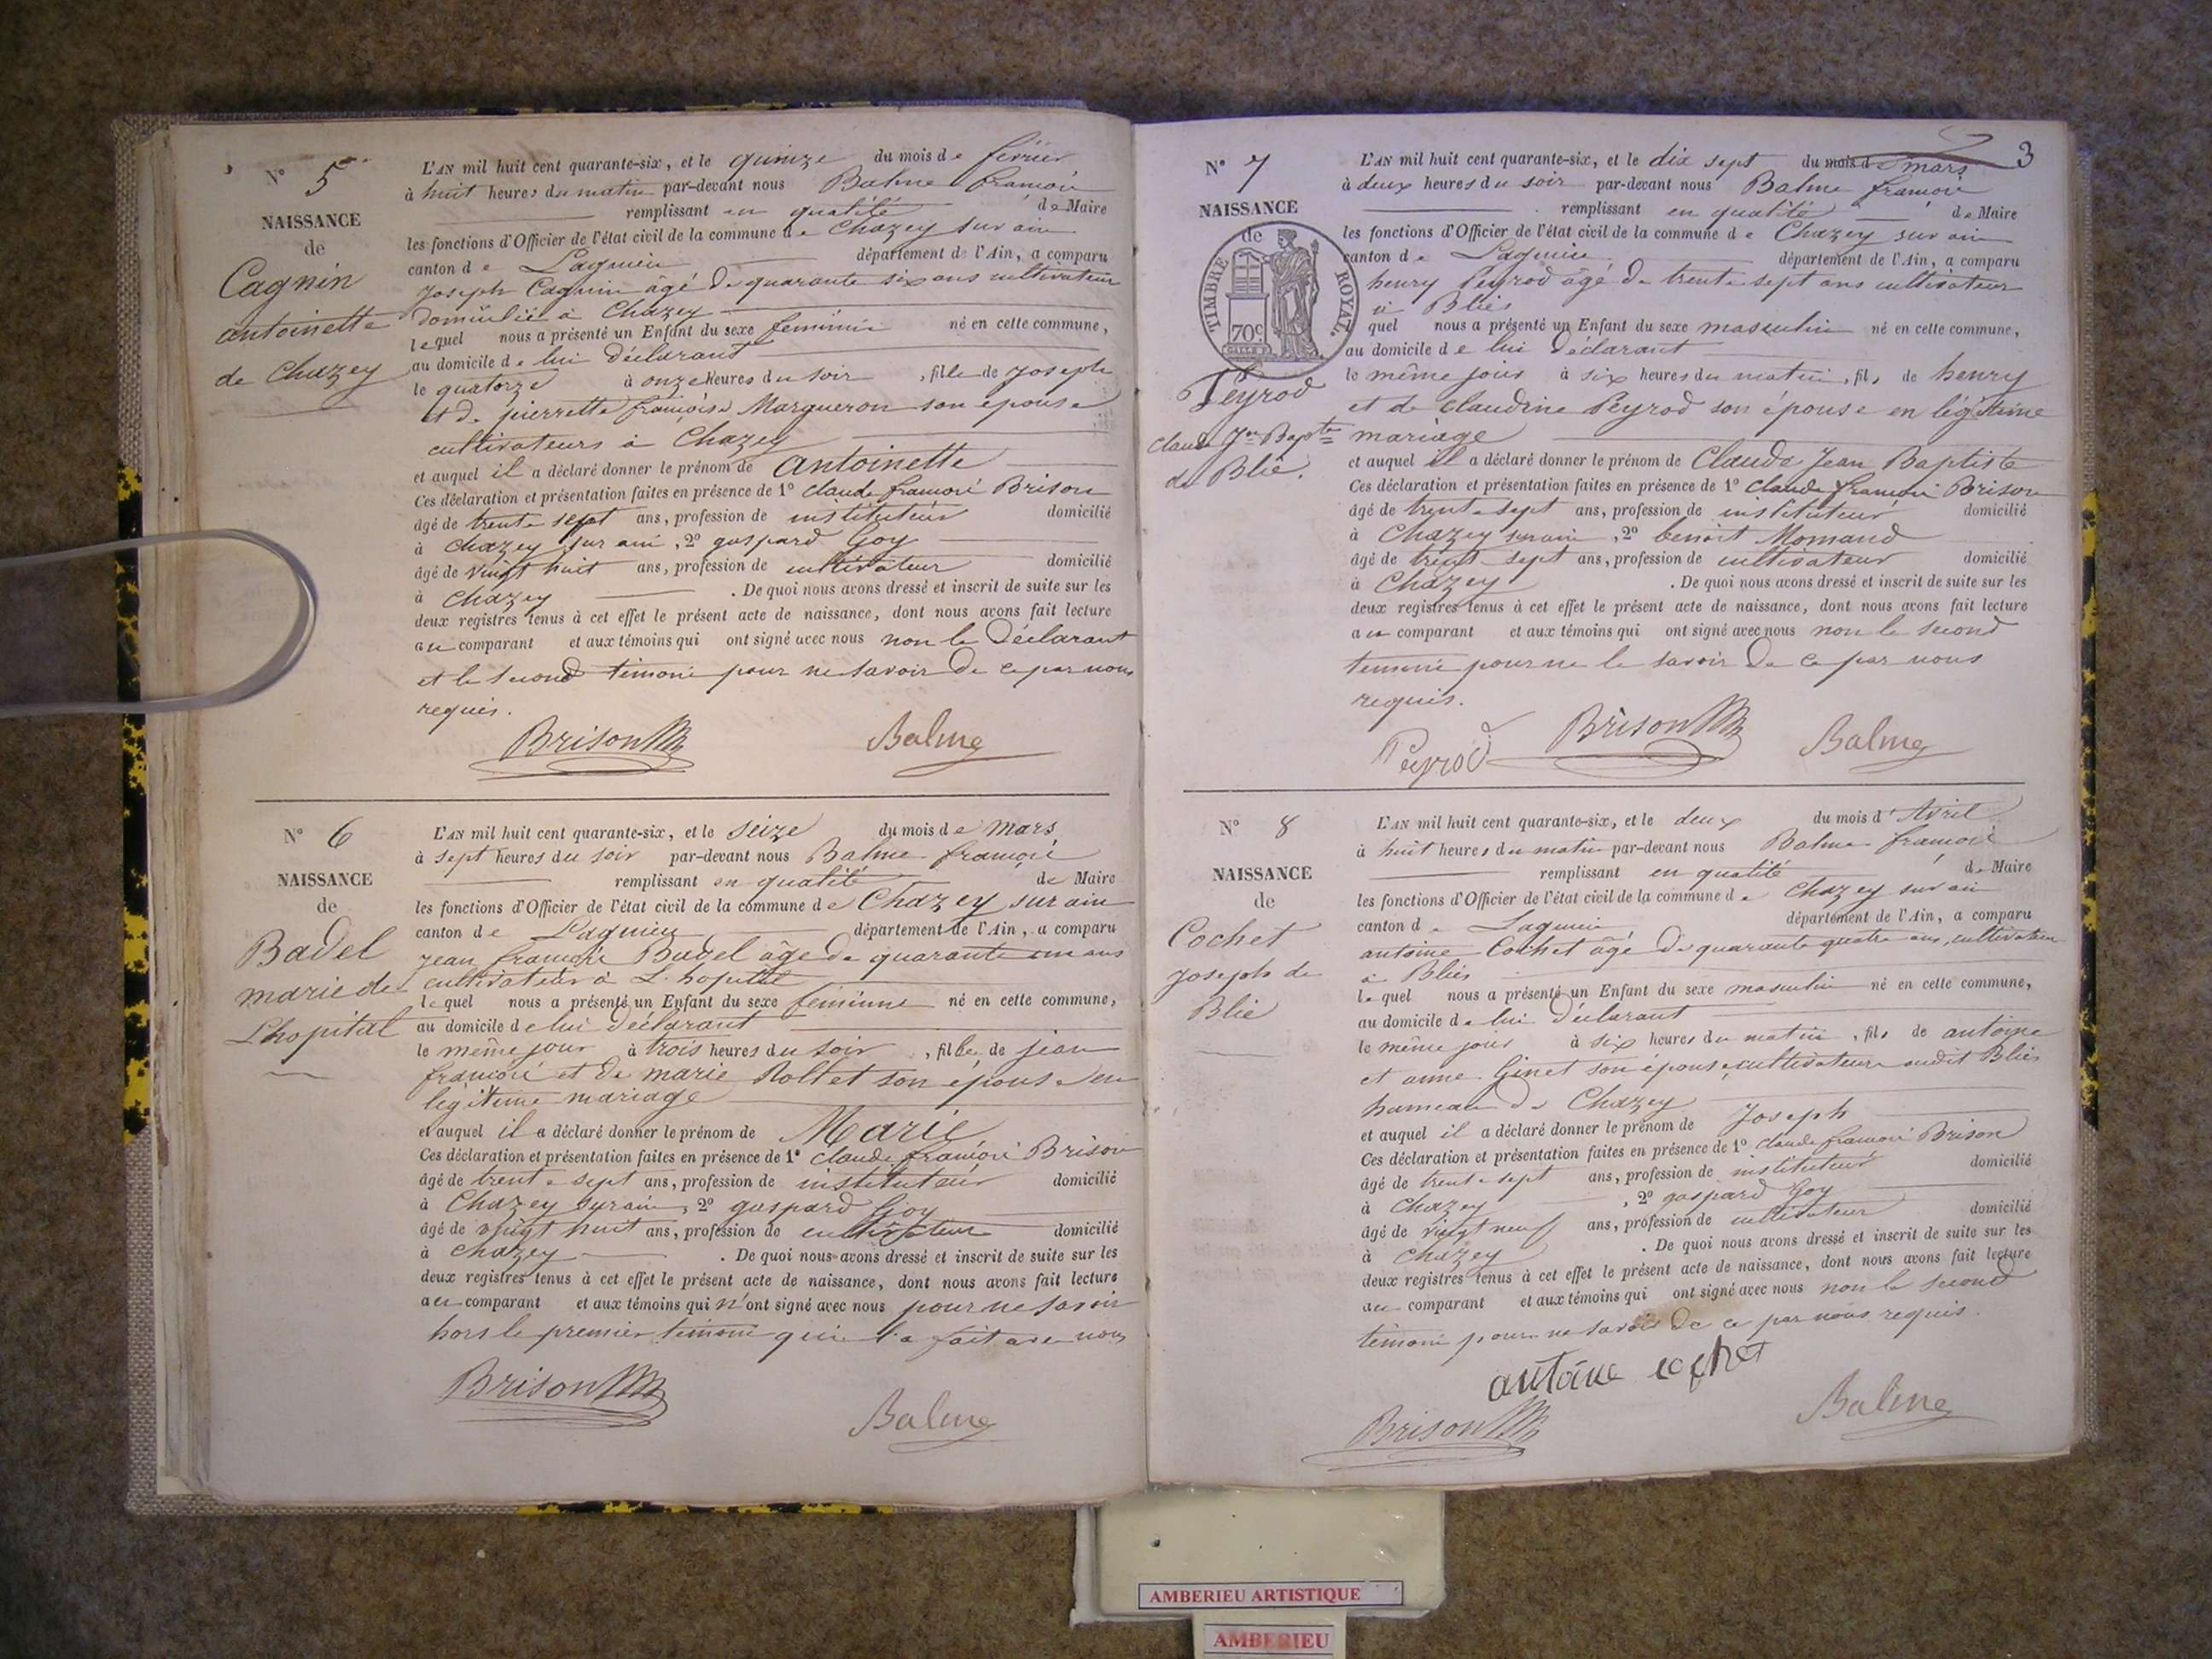 N° 5
NAISSANCE
de
Cagnin
antoinette
de Chazey
L'AN mil huit cent quarante-six, et le quinze du mois de février
à huit heures du matin par-devant nous Balme françois
remplissant en qualité de Maire
les fonctions d'Officier de l'état civil de la commune de Chazey sur ain
canton de Lagnieu département de l'Ain, a comparu
Joseph Cagnin âgé de quarante six ans cultivateur
domicilié à Chazey
lequel nous a présenté un Enfant du sexe feminin né en cette commune,
au domicile de lui déclarant
le quatorze à onze heures du soir, fille de Joseph
et de pierrette françoise Margueron son epouse
cultivateurs à Chazey
et auquel il a déclaré donner le prénom de Antoinette
Ces déclaration et présentation faites en présence de 1° Claude françois Brison
âgé de trente sept ans, profession de instituteur domicilié
à Chazey sur ain, 2° gaspard Goy
âgé de vingt huit ans, profession de cultivateur domicilié
à Chazey . De quoi nous avons dressé et inscrit de suite sur les
deux registres tenus à cet effet le présent acte de naissance, dont nous avons fait lecture
au comparant et aux témoins qui ont signé avec nous non le Déclarant
et le second témoin pour ne savoir de ce par nous
requis.
Brison Balme
N° 6
NAISSANCE
de
Badel
marie de
L'hopital
L'AN mil huit cent quarante-six, et le seize du mois de mars
à sept heures du soir par-devant nous Balme françois
remplissant en qualité de Maire
les fonctions d'Officier de l'état civil de la commune de Chazey sur ain
canton de Lagnieu département de l'Ain, a comparu
jean françois Badel âgé de quarante ans
cultivateur à L'hopital
lequel nous a présenté un Enfant du sexe feminine né en cette commune,
au domicile de lui déclarant
le même jour à trois heures du soir, fille de jean
françois et de marie Rollet son épouse en
légitime mariage
et auquel il a déclaré donner le prénom de Marie
Ces déclaration et présentation faites en présence de 1° Claude françois Brison
âgé de trente sept ans, profession de instituteur domicilié
à Chazey sur ain, 2° gaspard Goy
âgé de vingt huit ans, profession de cultivateur domicilié
à Chazey . De quoi nous avons dressé et inscrit de suite sur les
deux registres tenus à cet effet le présent acte de naissance, dont nous avons fait lecture
au comparant et aux témoins qui n'ont signé avec nous pour ne savoir
hors le premier témoin qui l'a fait avec nous
Brison
Balme
3
N° 7
NAISSANCE
de
TIMBRE ROYAL.
70c
Peyrod
Claude Jn Bapte
de Blie.
L'AN mil huit cent quarante-six, et le dix sept du mois de mars
à deux heures du soir par-devant nous Balme françois
remplissant en qualité de Maire
les fonctions d'Officier de l'état civil de la commune de Chazey sur ain
canton de Lagnieu département de l'Ain, a comparu
henry Peyrod âgé de trente sept ans cultivateur
à Bliés
quel nous a présenté un Enfant du sexe masculin né en cette commune,
au domicile de lui déclarant
le même jour à six heures du matin, fils de henry
et de claudine Peyrod son épouse en légitime
mariage
et auquel il a déclaré donner le prénom de Claude Jean Baptiste
Ces déclaration et présentation faites en présence de 1° Claude françois Brison
âgé de trente sept ans, profession de instituteur domicilié
à Chazey sur ain, 2° benoit Momand
âgé de trente sept ans, profession de cultivateur domicilié
à Chazey . De quoi nous avons dressé et inscrit de suite sur les
deux registres tenus à cet effet le présent acte de naissance, dont nous avons fait lecture
au comparant et aux témoins qui ont signé avec nous non le second
temoin pour ne le savoir de ce par nous
requis.
Peyrod Brison Balme
N° 8
NAISSANCE
de
Cochet
Joseph de
Blie
L'AN mil huit cent quarante-six, et le deux du mois d'Avril
à huit heures du matin par-devant nous Balme françois
remplissant en qualité de Maire
les fonctions d'Officier de l'état civil de la commune de Chazey sur ain
canton de Lagnieu département de l'Ain, a comparu
antoine Cochet âgé de quarante quatre ans, cultivateur
à Bliés
lequel nous a présenté un Enfant du sexe masculin né en cette commune,
au domicile de lui déclarant
le même jour à six heures du matin, fils de antoine
et anne Ginet son épouse, cultivateurs audit Bliés
hameau de Chazey
et auquel il a déclaré donner le prénom de Joseph
Ces déclaration et présentation faites en présence de 1° Claude françois Brison
âgé de trente sept ans, profession de instituteur domicilié
à Chazey , 2° gaspard Goy
âgé de vingt neuf ans, profession de cultivateur domicilié
à Chazey . De quoi nous avons dressé et inscrit de suite sur les
deux registres tenus à cet effet le présent acte de naissance, dont nous avons fait lecture
au comparant et aux témoins qui ont signé avec nous non le second
témoin pour ne savoir de ce par nous requis.
antoine cochet
Brison Balme
AMBERIEU ARTISTIQUE
AMBERIEU